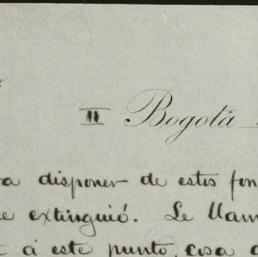 II Bogotá
a disponer de estos fon
e extinguió. Le llam
á este punto, cosa